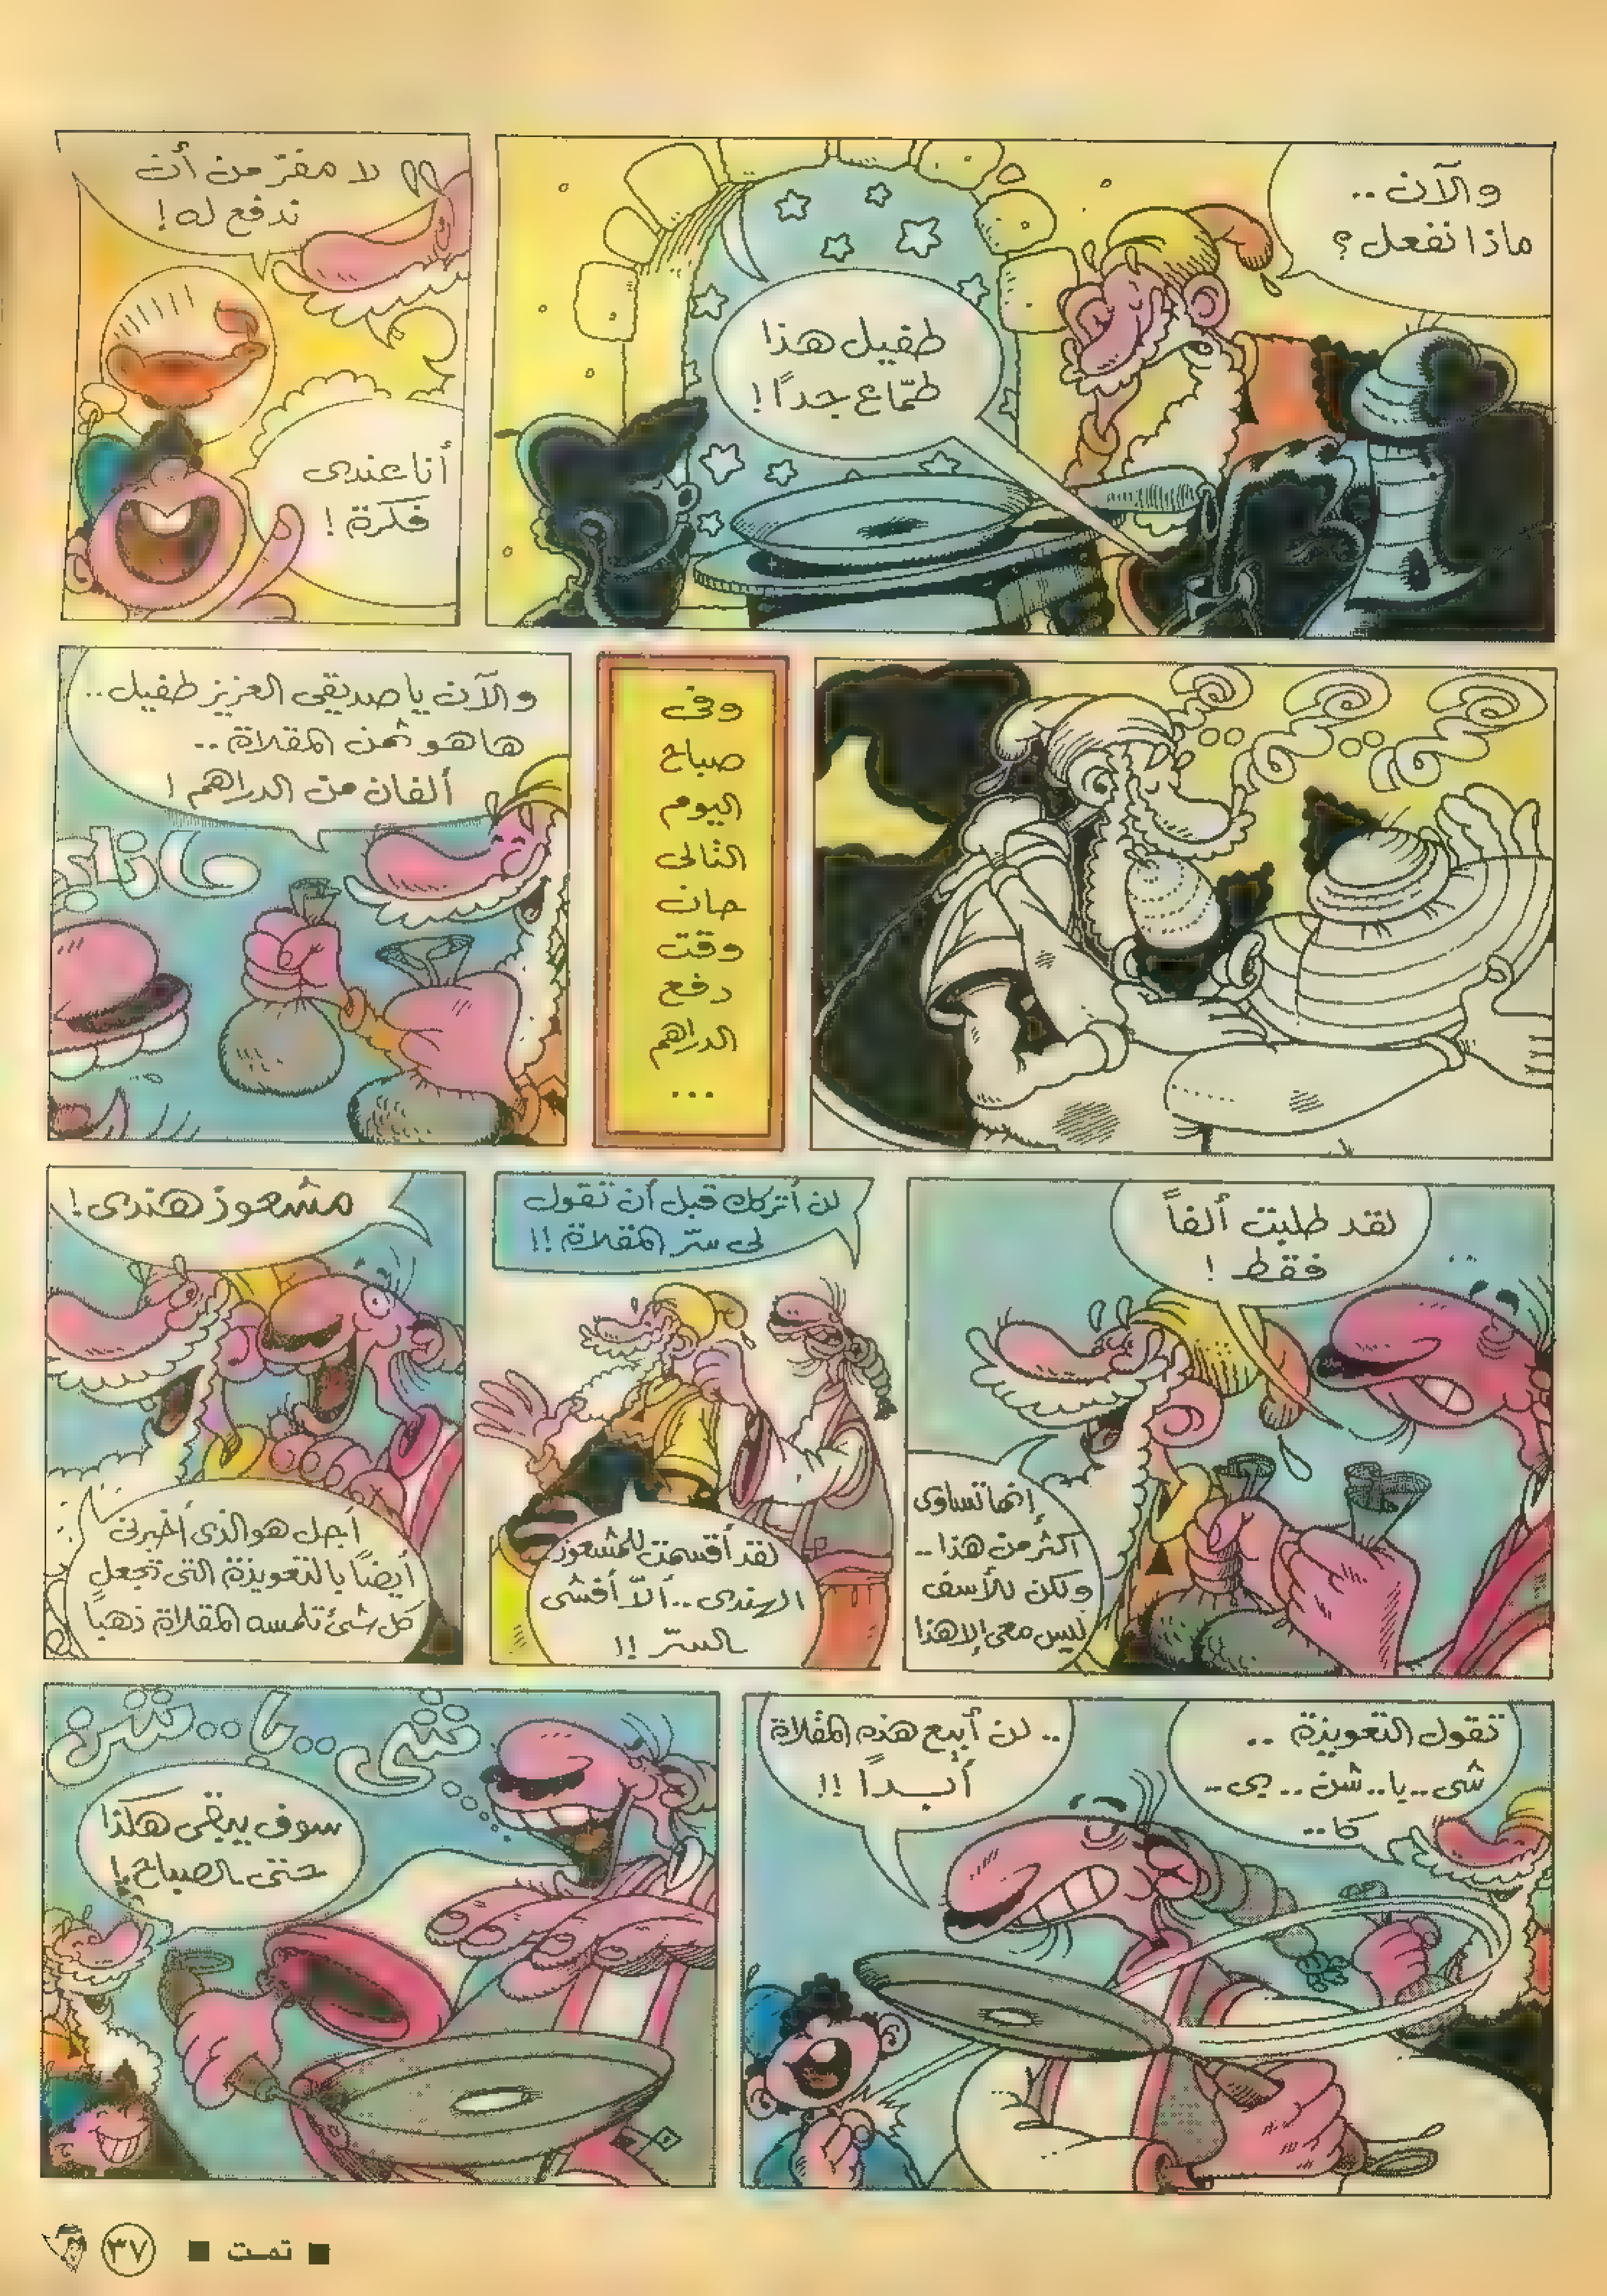 والآن..
ماذا نفعل؟
طفيل هذا
طمّاع جدًا!
لا مفرّ من أن
ندفع له!
أنا عندى
فكرة!
وفى
صباح
اليوم
التالى
حان
وقت
دفع
الدراهم
...
والآن يا صديقى العزيز طفيل..
ها هو ثمن المقلاة..
ألفان من الدراهم!
لقد طلبت ألفاً
فقط!
إنها تساوى
أكثر من هذا..
ولكن للأسف
ليس معى إلا هذا
لن أتركك قبل أن تقول
لى سرّ المقلاة!!
لقد أقسمت للمشعوذ
الهندى.. ألاّ أفشى
السرّ!!
مشعوذ هندى!
أجل هو الذى أخبرنى
أيضًا بالتعويذة التى تجعل
كل شئ تلمسه المقلاة ذهباً
تقول التعويذة..
شى..يا..شن..بى..
كا..
..لن أبيع هذه المقلاة
أبدًا!!
شى..يا..شن
سوف يبقى هكذا
حتى الصباح!
■ تمت ■
٣٧